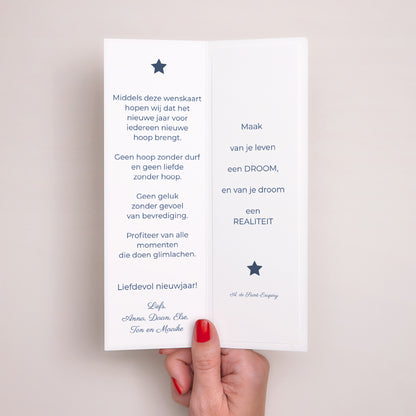 Middels deze wenskaart
hopen wij dat het
nieuwe jaar voor
iedereen nieuwe
hoop brengt.
Geen hoop zonder durf
en geen liefde
zonder hoop.
Geen geluk
zonder gevoel
van bevrediging.
Profiteer van alle
momenten
die doen glimlachen.
Liefdevol nieuwjaar!
Liefs,
Anna, Daan, Else,
Ton en Maaike
Maak
van je leven
een DROOM,
en van je droom
een
REALITEIT
A. de Saint-Exupéry